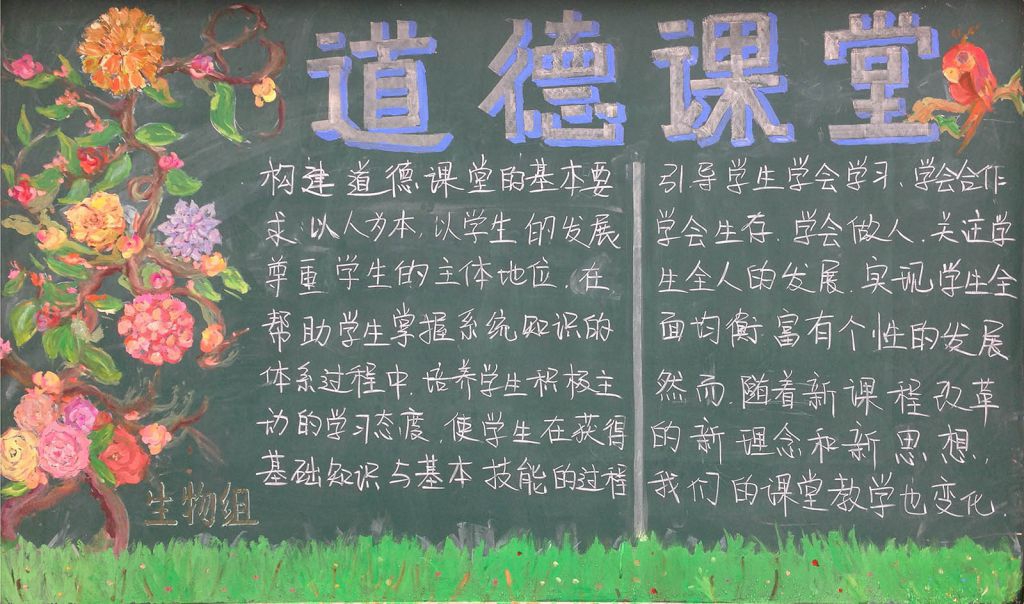 道德课堂
构建道德课堂的基本要
求，以人为本，以学生的发展
尊重学生的主体地位，在
帮助学生掌握系统知识的
体系过程中，培养学生积极主
动的学习态度，使学生在获得
基础知识与基本技能的过程
引导学生学会学习、学会合作
学会生存、学会做人，关注学
生全人的发展，实现学生全
面均衡富有个性的发展
然而，随着新课程改革
的新理念和新思想，
我们的课堂教学也变化，
生物组